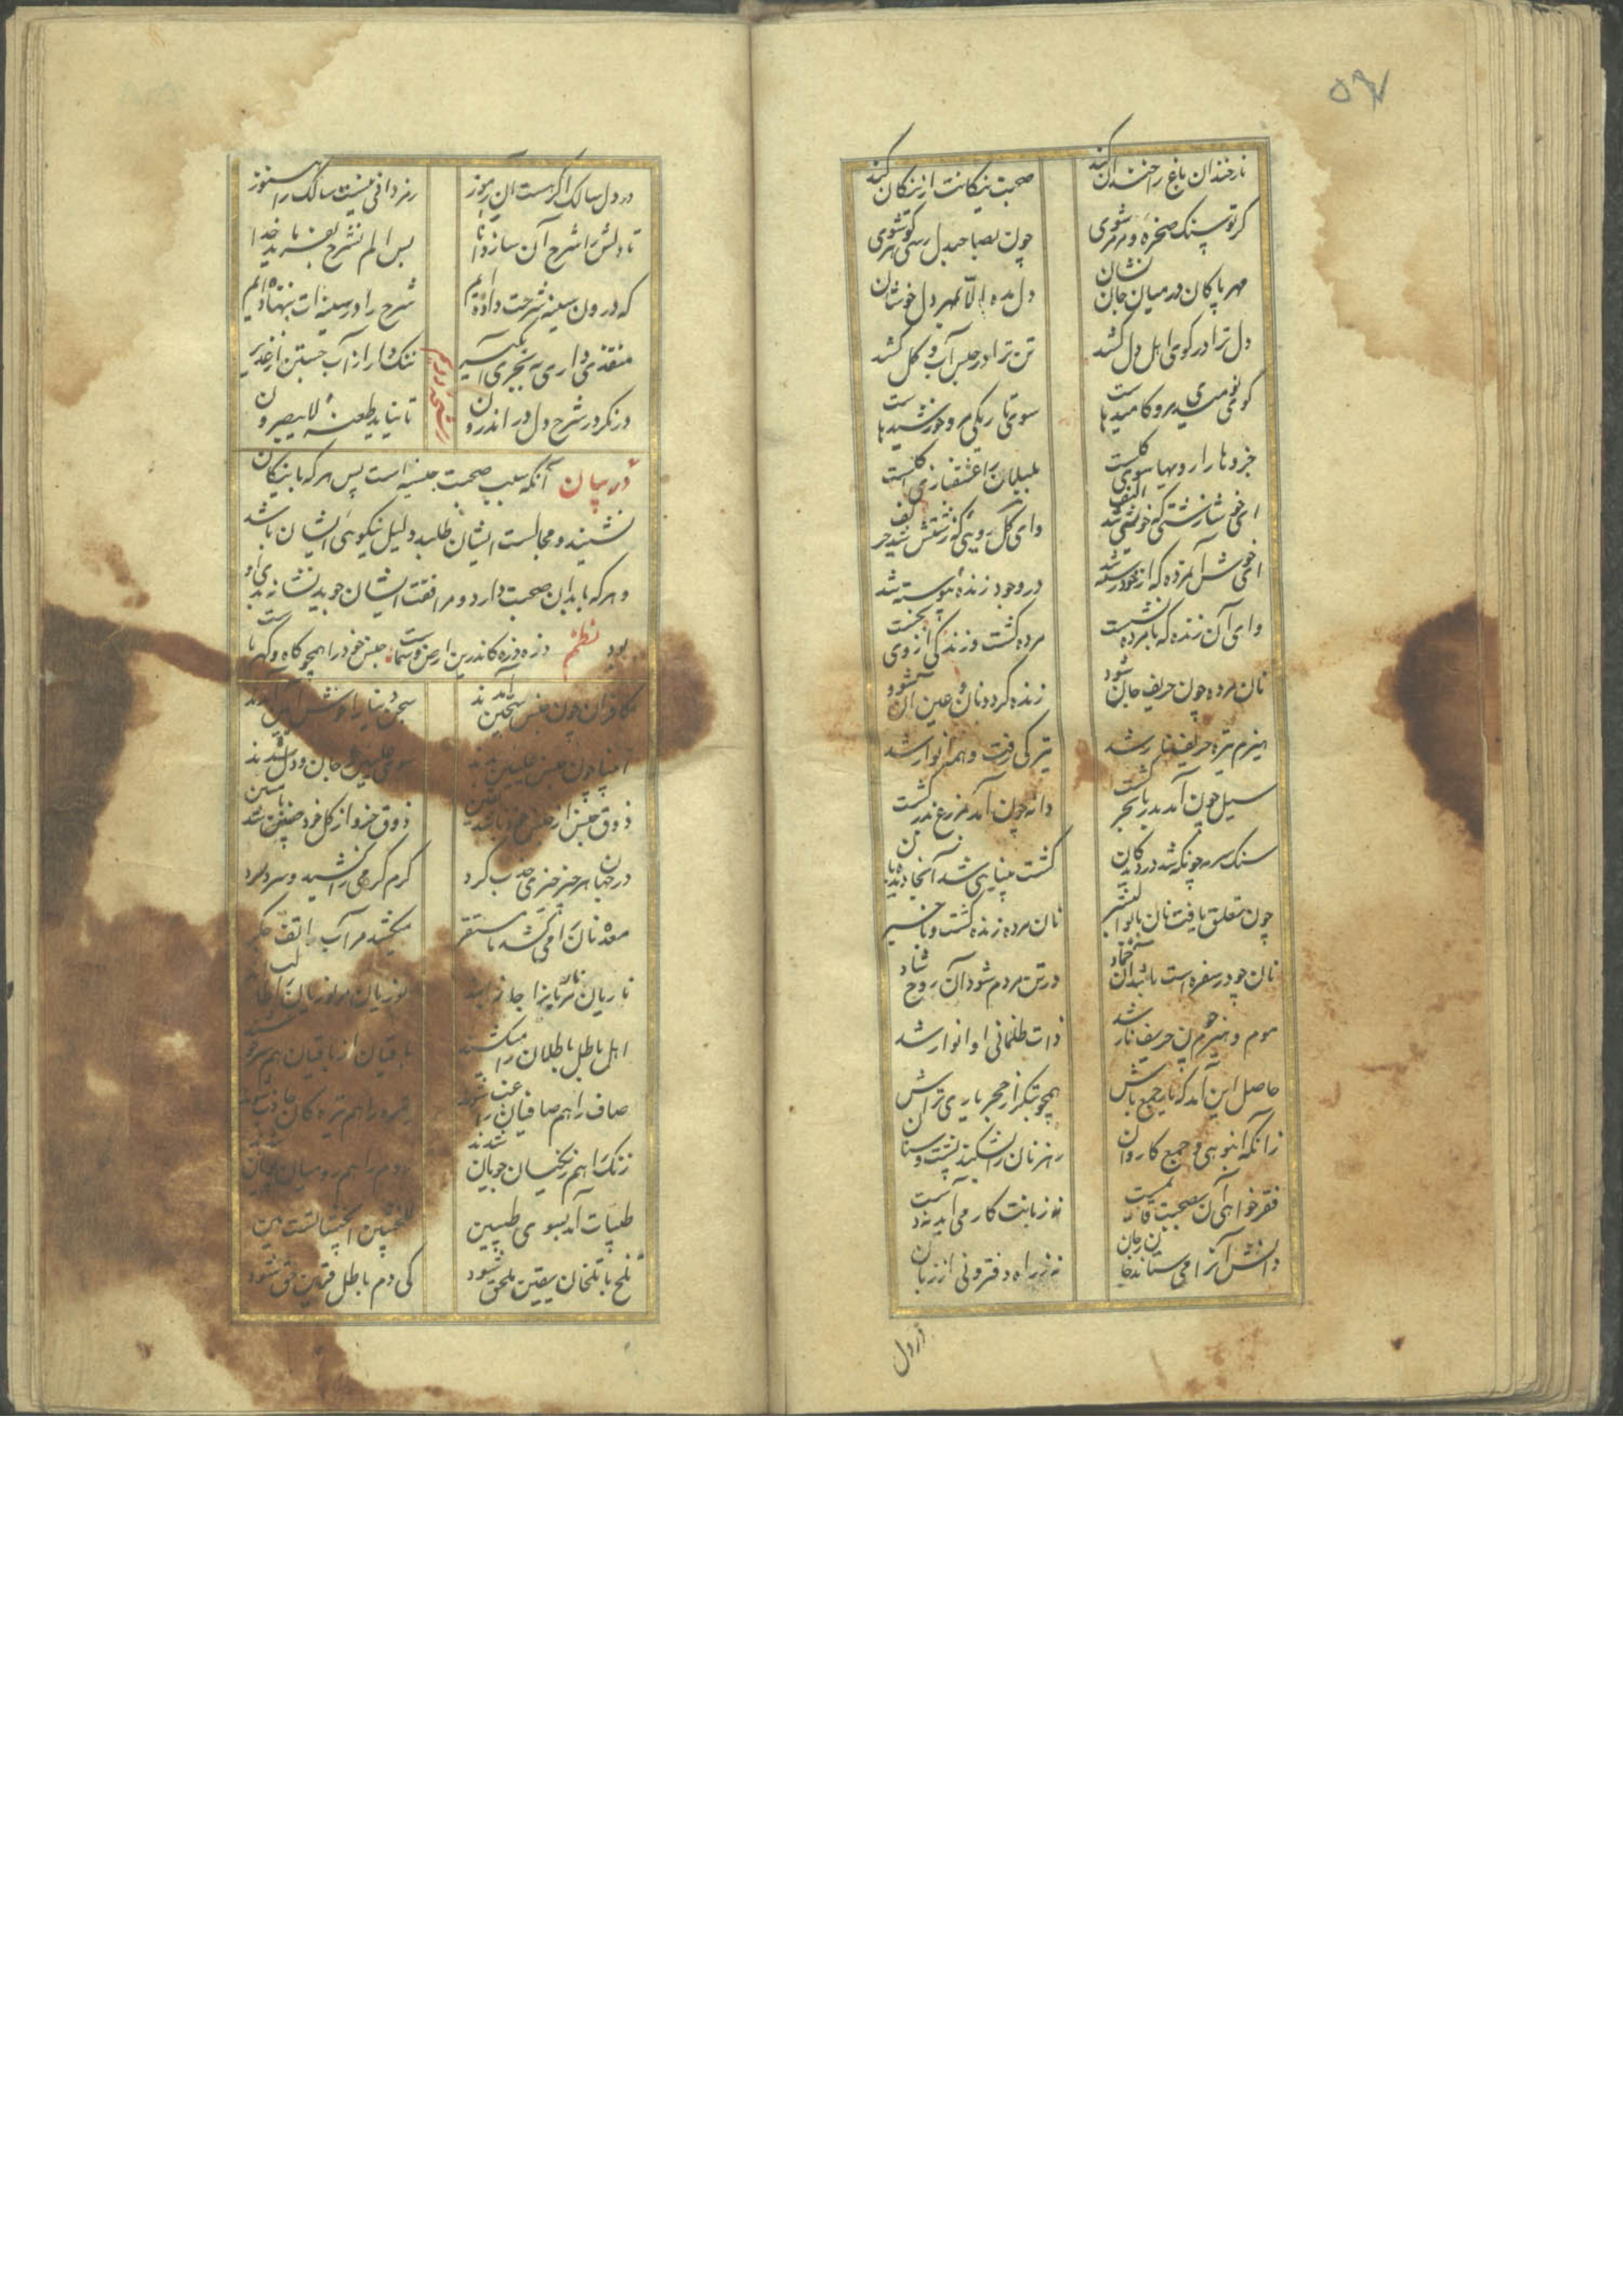 ۵۹۷
نار خندان باغ را خندان کند صحبت نیکانت از نیکان کند
گر تو سنگ صخره و مرمر شوی چون بصاحبدل رسی گوهر شوی
مهر پاکان در میان جان نشان دل مده الا بمهر دل خوشان
دل ترا در کوی اهل دل کشد تن ترا در حبس آب و گل کشد
کوی نومیدی مرو کامیدهاست سوی تاریکی مرو خورشیدهاست
جزوها را رویها سوی کلست بلبلان را عشقبازی با گلست
ای خوشا زشتی که خوبش شد حریف وای گل رویی که زشتش شد حریف
ای خوش آن مرده که از خود رسته شد در وجود زنده پیوسته شد
وای آن زنده که با مرده نشست مرده گشت و زندگی از وی بجست
نان مرده چون حریف جان شود زنده گردد نان و عین آن شود
هیزم تیره حریف نار شد تیرگی رفت و همه انوار شد
سیل چون آمد بدریا بحر گشت دانه چون آمد بمزرع گشت
سنگ سرمه چونکه شد در دیدگان گشت بینایی شد آنجا دیدبان
چون تعلق یافت نان با بوالبشر نان مرده زنده گشت و با خبر
نان چو در سفره است باشد آن جماد در تن مردم شود آن روح شاد
موم و هیزم چون حریف نار شد ذات ظلمانی او انوار شد
حاصل این آمد که یار جمع باش همچو بتگر از حجر یاری تراش
زانکه انبوهی و جمع کاروان رهزنان را بشکند پشت و سنان
فقر خواهی آن بصحبت قائمست نه زبانت کار می آید نه دست
دانش آنرا ستاند جان ز جان نه ز راه دفتر و نی از زبان
از دل
در دل سالک اگر هست آن رموز رمزدانی نیست سالک را هنوز
تا دلش را شرح آن سازد ضیا پس الم نشرح بفرماید خدا
که درون سینه شرحت داده ایم شرح را در سینه ات بنهاده ایم
منفذی داری ببحر ای آبگیر ننگ دار از آب جستن از غدیر
درنگر در شرح دل در اندرون تا نیاید طعنهٔ لا یبصرون
در بیان آنکه سبب صحبت جنسیه است پس هر که با نیکان
نشیند و مجالست ایشان طلبد دلیل نیکوئی ایشان باشد
و هر که با بدان صحبت دارد و مرافقت ایشان جوید نشانه بدی او
بود نظم ذره ذره کاندرین ارض و سماست جنس خود را همچو کاه و کهرباست
کافران چون جنس سجین آمدند سجن دنیا را خوش آیین آمدند
انبیا چون جنس علیین بدند سوی علیین جان و دل شدند
ذوق جنس از جنس خود باشد یقین ذوق جزو از کل خود باشد ببین
در جهان هر چیز چیزی جذب کرد گرم گرمی را کشید و سرد سرد
معده نان را میکشد تا مستقر میکشد مر آب را تف جگر
ناریان مر ناریان را جاذبند نوریان مر نوریان را طالبند
اهل باطل باطلان را میکشند باقیان از باقیان هم سرخوشند
صاف را هم صافیان راغب شوند درد را هم تیره گان جاذب شوند
زنگ را هم زنگیان جویان شدند روم را هم رومیان جویان شدند
طیبات آمد بسوی طیبین للخبیثین الخبیثات است هین
تلخ با تلخان یقین ملحق شود کی دم باطل قرین حق شود